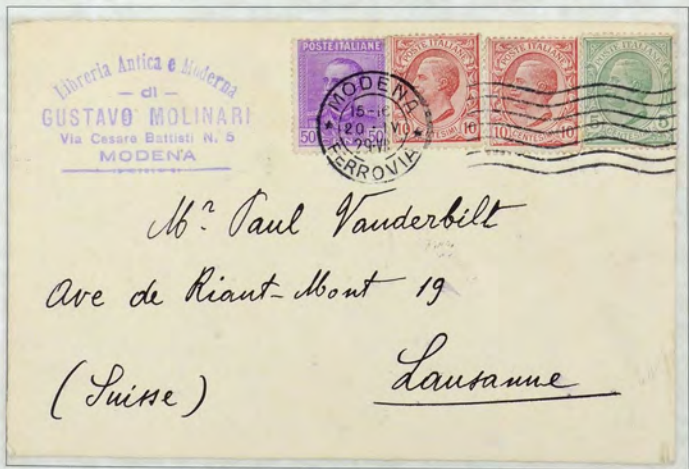 Libreria Antica e Moderna
– di –
GUSTAVO MOLINARI
Via Cesare Battisti N. 5
MODENA
POSTE ITALIANE
50 50
POSTE ITALIANE
CENTESIMI 10
POSTE ITALIANE
10 CENTESIMI 10
POSTE ITALIANE
5 5
MODENA
20
FERROVIA
Mr. Paul Vanderbilt
Ave de Riant-Mont 19
(Suisse) Lausanne